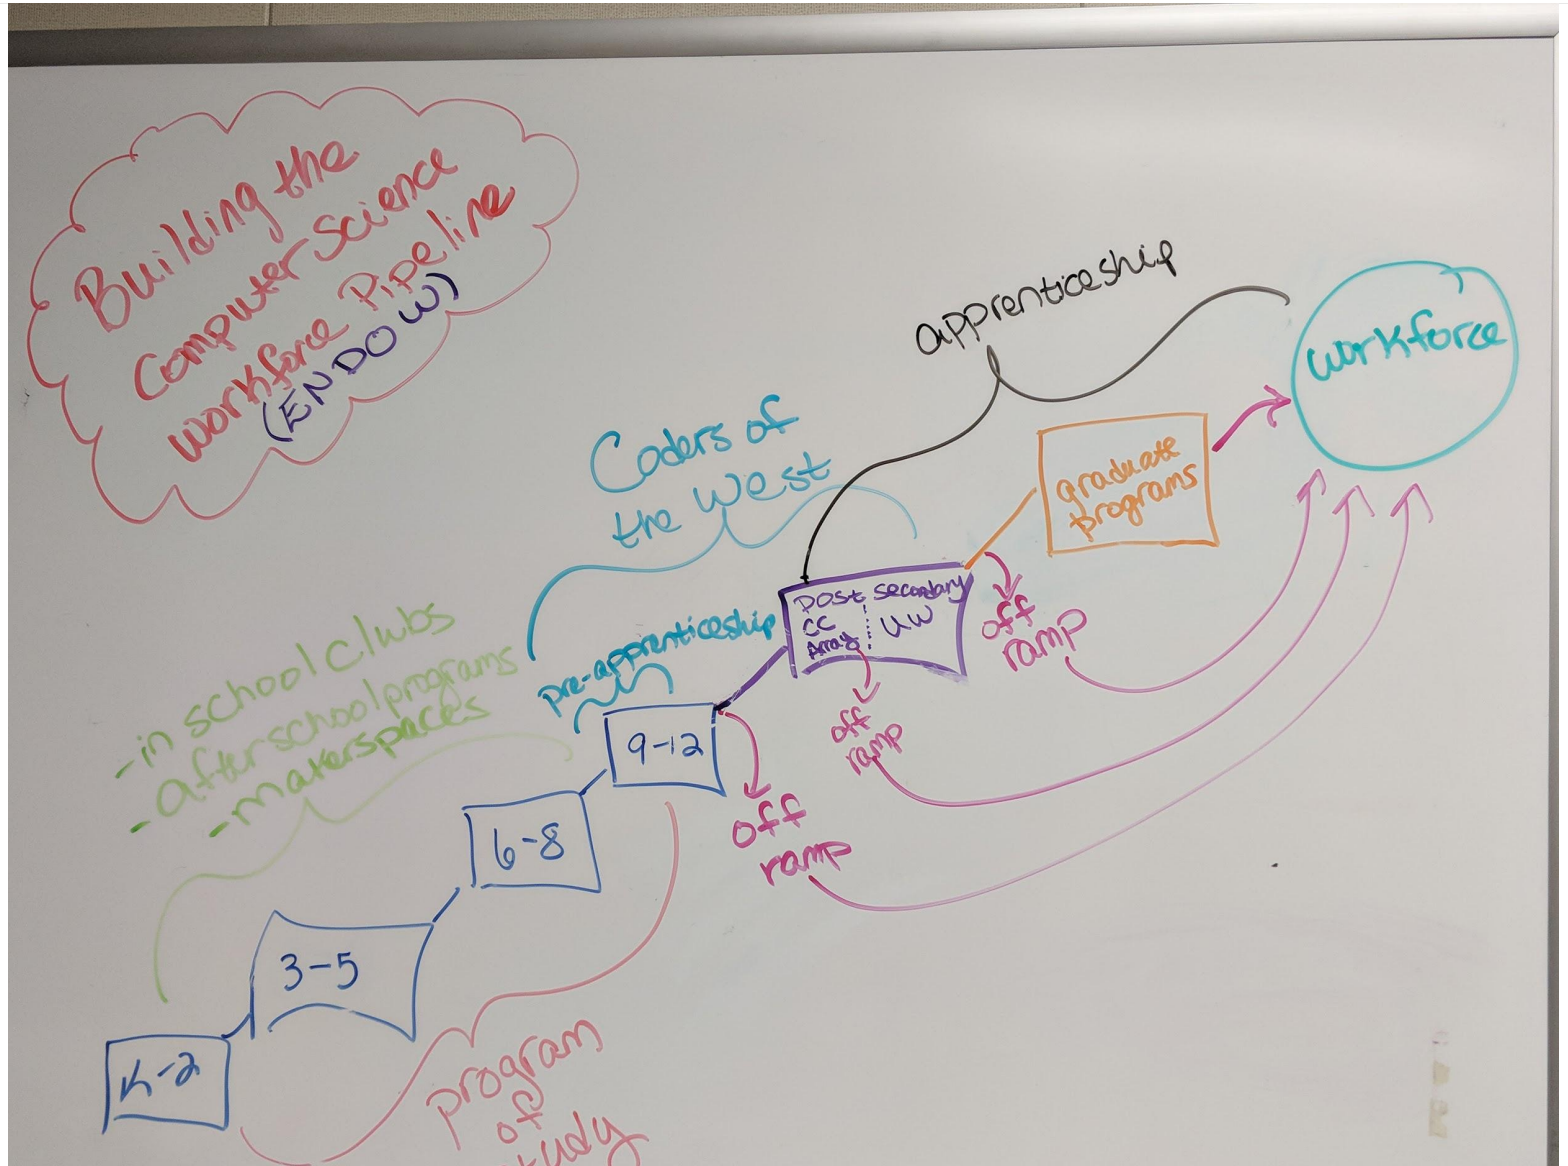 Building the
Computer Science
workforce Pipeline
(ENDOW)
apprenticeship
workforce
Coders of
the West
graduate
programs
post secondary
CC
UW
Array
off
ramp
pre-apprenticeship
- in school clubs
- after school programs
- makerspaces
off
ramp
9-12
off
ramp
6-8
3-5
K-2
program
of